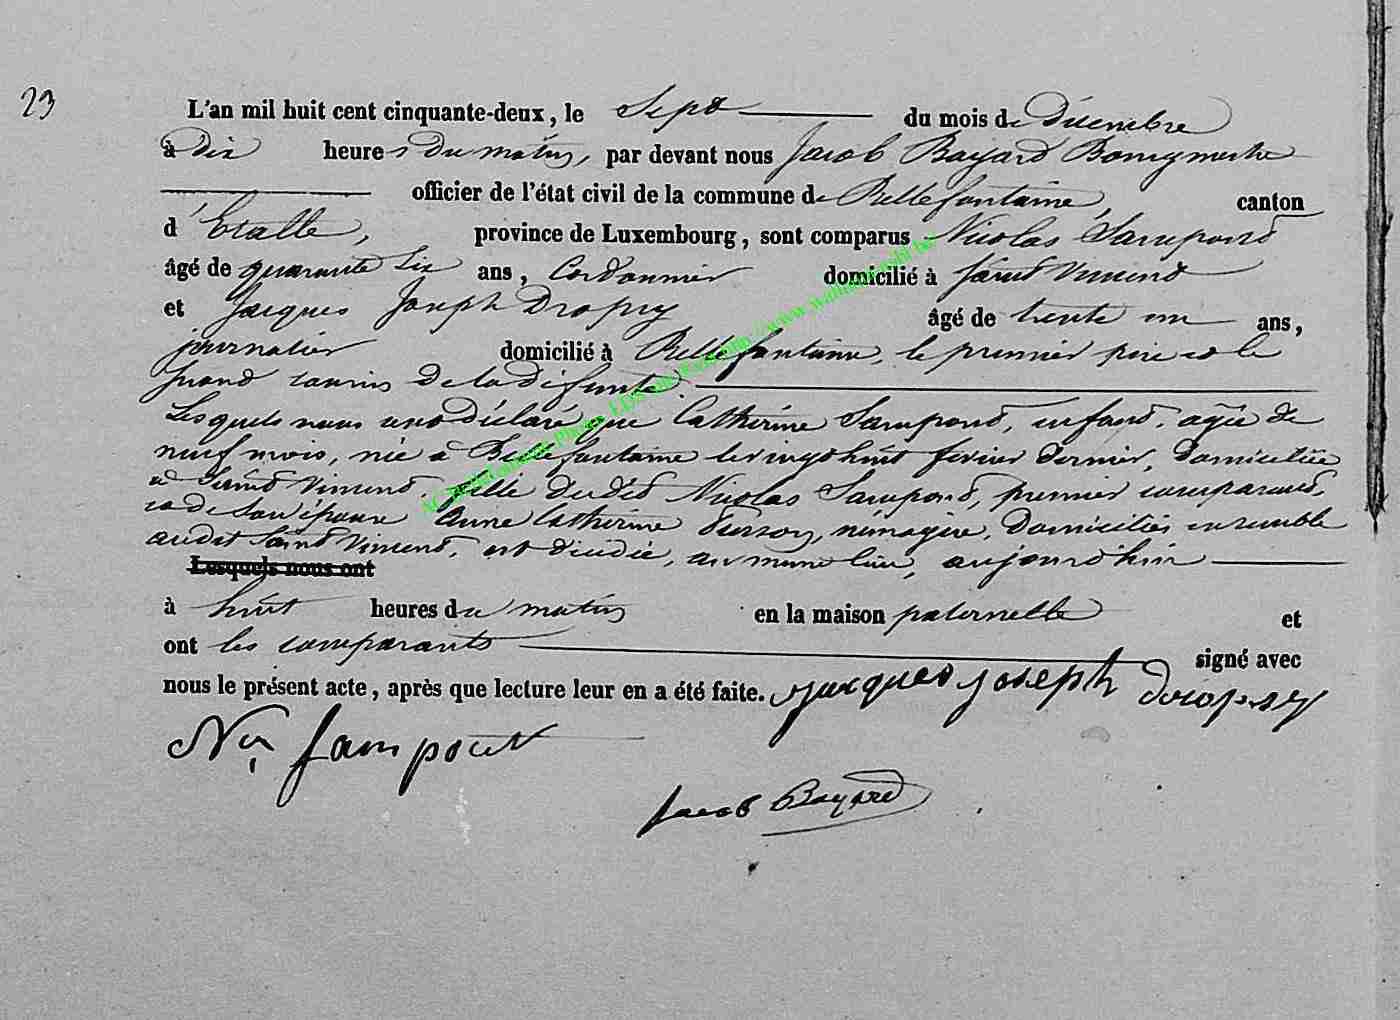 23
L'an mil huit cent cinquante-deux, le Sept du mois de Décembre
à Dix heures Du matin, par devant nous Jacob Bayard Bourgmestre
officier de l'état civil de la commune de Bellefontaine, canton
d'Etalle, province de Luxembourg, sont comparus Nicolas Sampont
âgé de quarante six ans, Cordonnier domicilié à Saint Vincent
et Jacques Joseph Dropsy âgé de trente un ans,
journalier domicilié à Bellefontaine, le premier père et le
second cousin de la défunte.
Lesquels nous ont Déclaré que Catherine Sampont, enfant, agée de
neuf mois, née à Bellefontaine le vingt huit fevrier dernier, Domiciliée
à Saint Vincent, fille du dit Nicolas Sampont, premier comparant,
et de son épouse Anne Catherine, ménagère, Domiciliés ensemble
audit Saint Vincent, est décédée, au même lieu, aujourd'hui
Lesquels nous ont
à huit heures du matin en la maison paternelle et
ont les comparants signé avec
nous le présent acte, après que lecture leur en a été faite. jacques joseph dropsy
Nas Sampont
Jacob Bayard